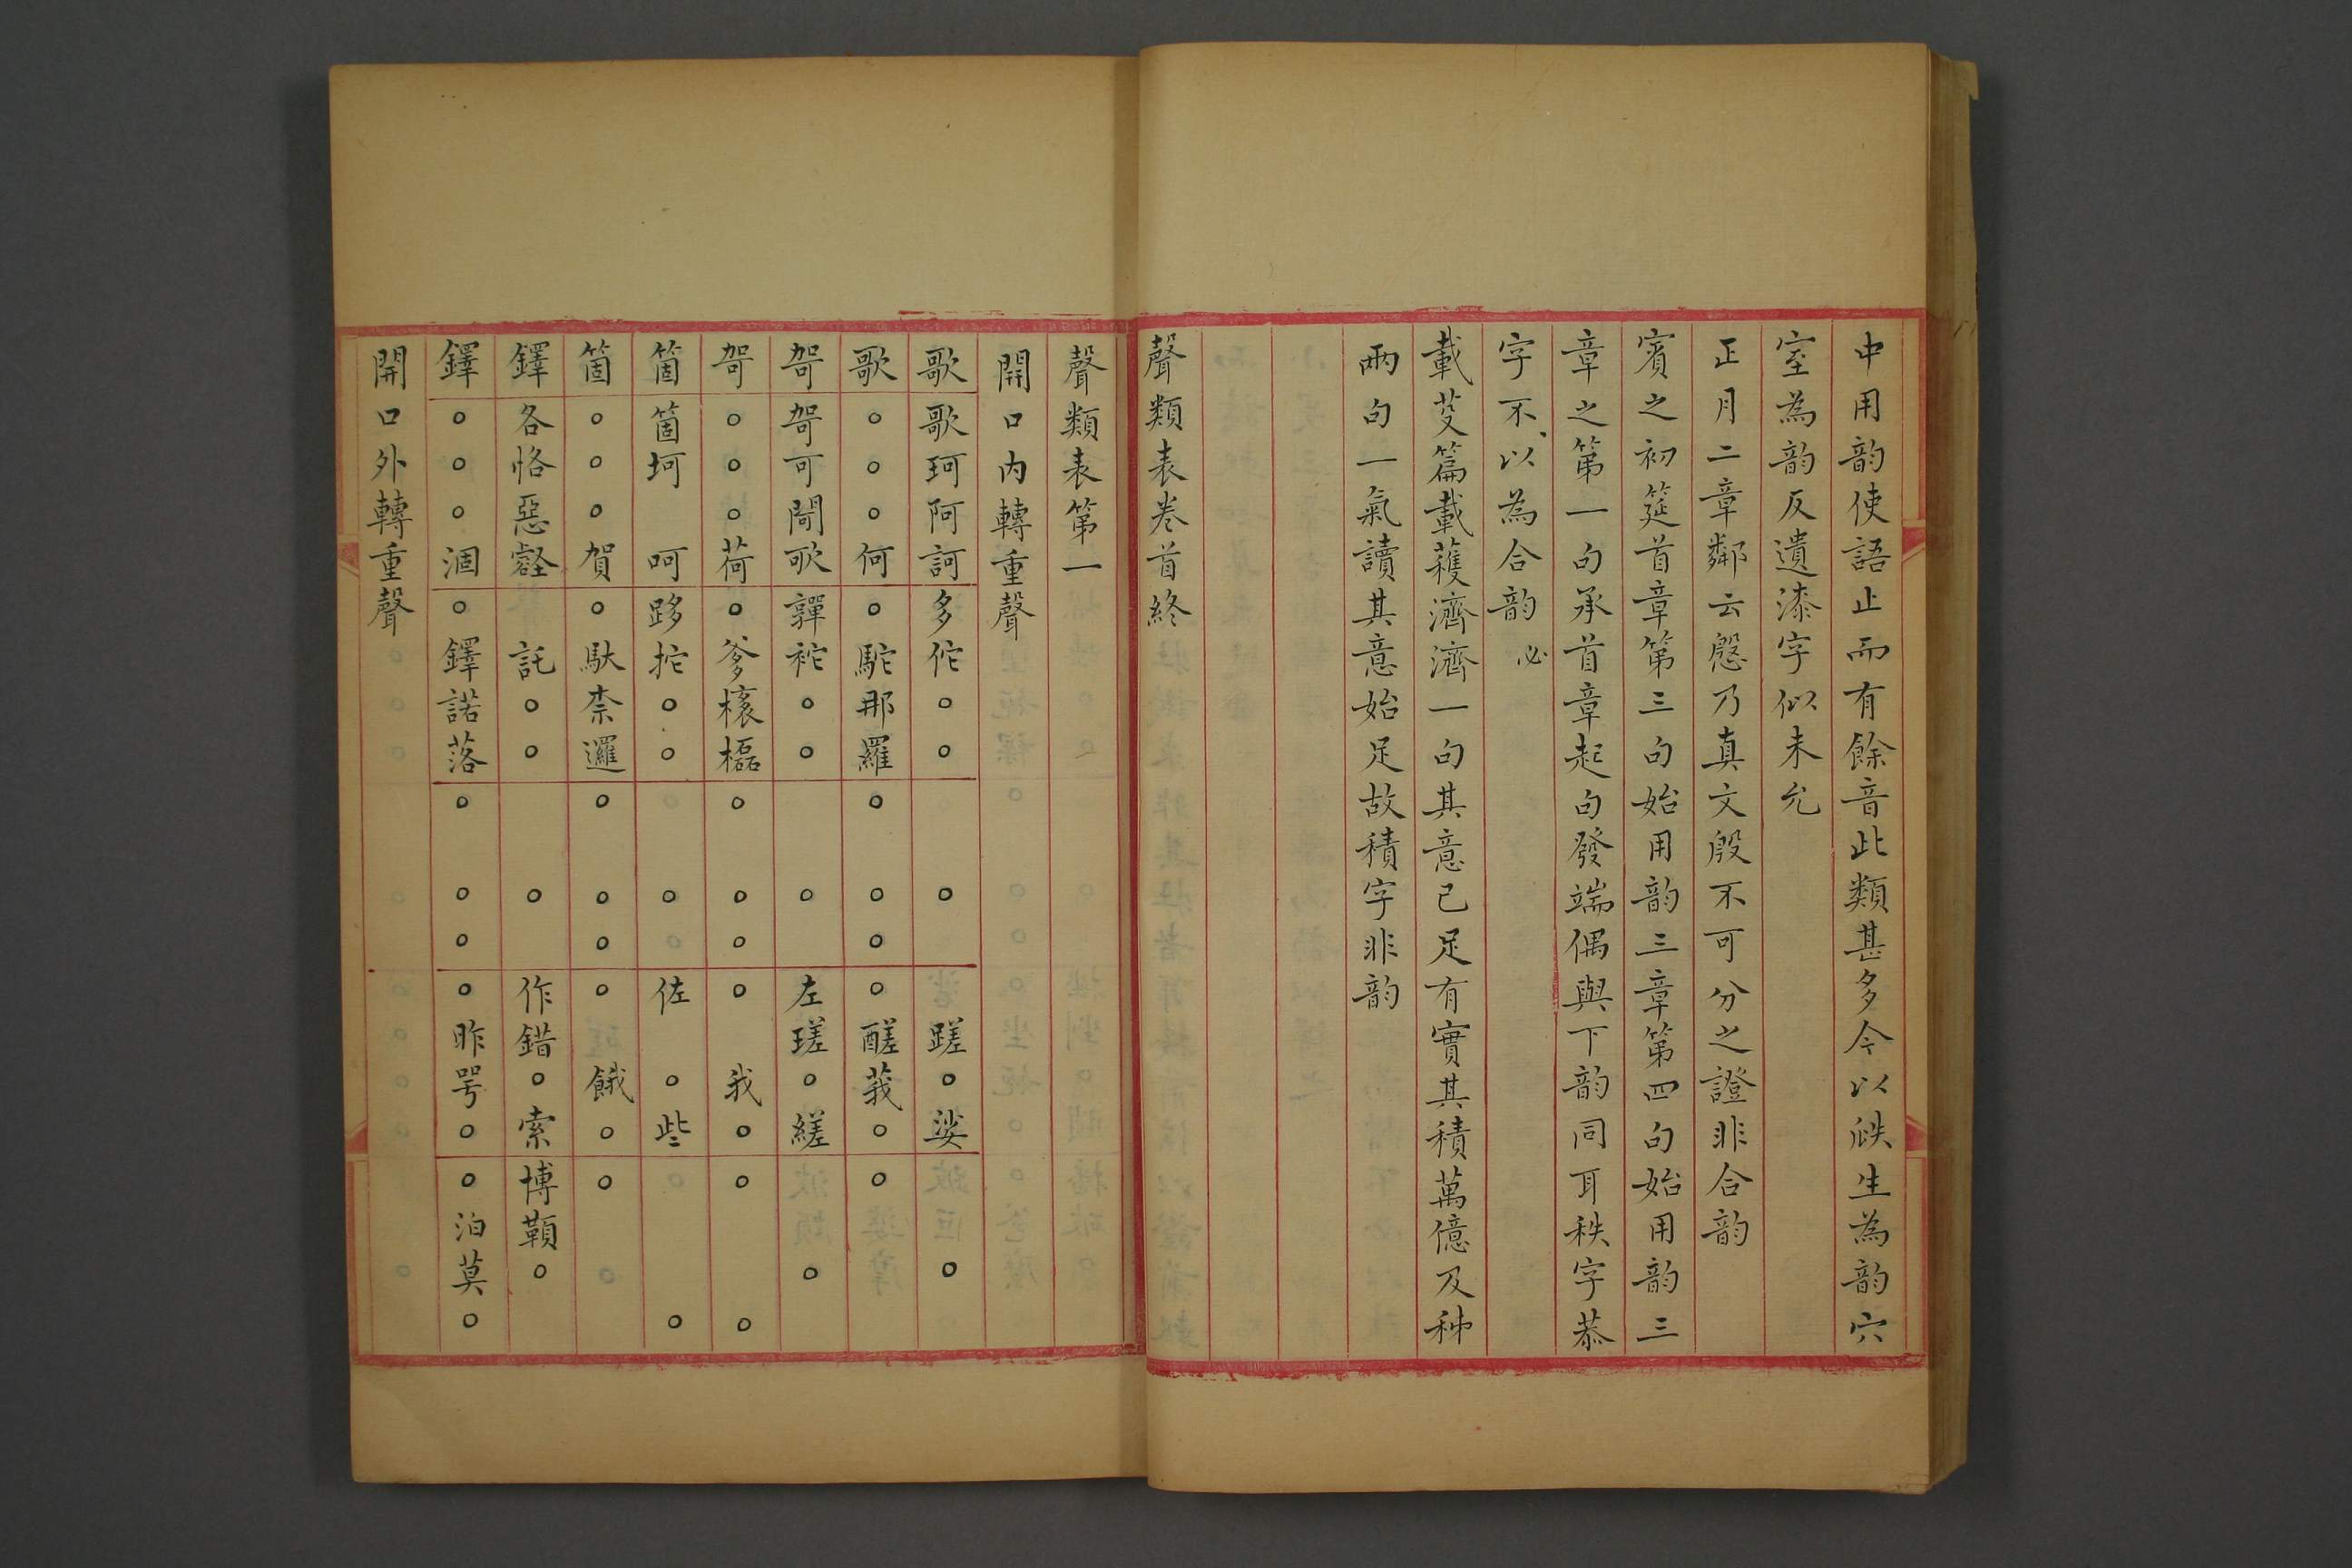 中用韵使語止而有餘音此類甚多今以瓞生為韵穴
室為韵反遺漆字似未允
正月二章鄰云慇乃真文殷不可分之證非合韵
賓之初筵首章第三句始用韵三章第四句始用韵三
章之第一句承首章起句發端偶與下韵同耳秩字恭
字不以為合韵
必
載芟篇載穫濟濟一句其意已足有實其積萬億及秭
兩句一氣讀其意始足故積字非韵
聲類表卷首終
聲類表第一
開口內轉重聲
歌 歌珂阿訶 多佗○○ ○ 蹉○娑 ○
歌 ○○○何 ○駝那羅 ○○○ ○醝莪○ ○
哿 哿可閜歌 嚲袉○○ ○ 左瑳○縒 ○
哿 ○○○荷 ○爹橠𣖊 ○○○ ○我○ ○○
箇 箇坷呵 跢拕○○ ○ 佐○些 ○
箇 ○○○賀 ○馱柰邏 ○○○ ○餓○ ○
鐸 各恪惡壑 託○○ ○ 作錯○索 博䩹○
鐸 ○○○涸 ○鐸諾落 ○○○ ○昨咢○ ○泊莫○
開口外轉重聲